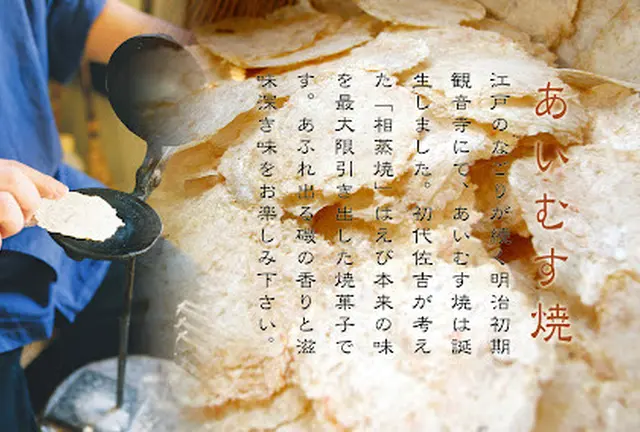 あいむす焼
江戸のなごりが続く明治初期
観音寺にて、あいむす焼は誕
生しました。初代佐吉が考え
た「相蒸焼」はえび本来の味
を最大限引き出した焼菓子で
す。あふれ出る磯の香りと滋
味深き味をお楽しみ下さい。